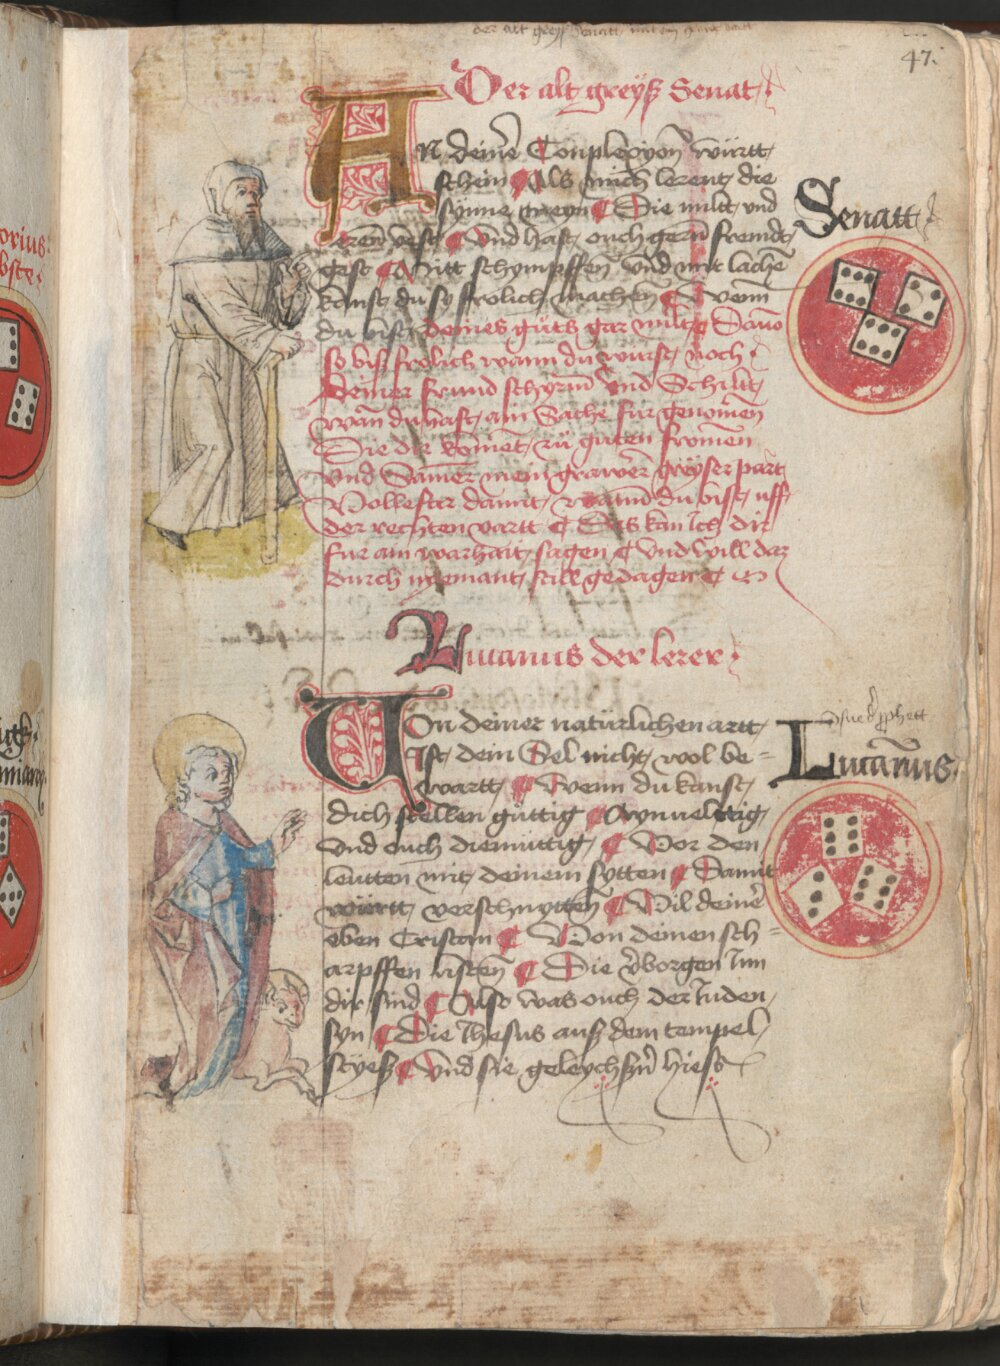 der alt greyß Senatt
47.
Der alt greyß Senat
An deiner Complexyon württ
schein Als mich lerent die
synne greyn Die milt und
eren vest Und hast ouch gern fremdt
gest Mitt schympffen und mit lache
kanst du sy frolich machen Wenn
du bist deines gůts gar milt Dauo
so bist frolich wann du wurst noch
deiner frund schyrm und Schilt
Wan du hast ain Sache fur genomen
Die dir koment zů gůten fromen
Und Samer mein grawer greyser part
Vollefar damit wann du bist uff
der rechten vartt Das kan Ich dir
fur ain warhait sagen Und will daz
durch nyemant still gedagen
Senatt
Lucanus der lerer
Von deiner natürlichen artt
Ist dein Sel nicht wol be-
wartt Wenn du kanst
dich stellen gůttig Aynueltig
Und ouch diemüttig Vor den
leutten mit deinem sytten Damit
württ verschnytten Vil deiner
eben Cristain Von deinen sch-
arpffen listen Die verborgen Inn
dir sind Also was ouch der Juden
syn Die Jhesus auß dem tempel
styeß Und sie geleychßner hieß
prophett
Lucanus
orius
bste